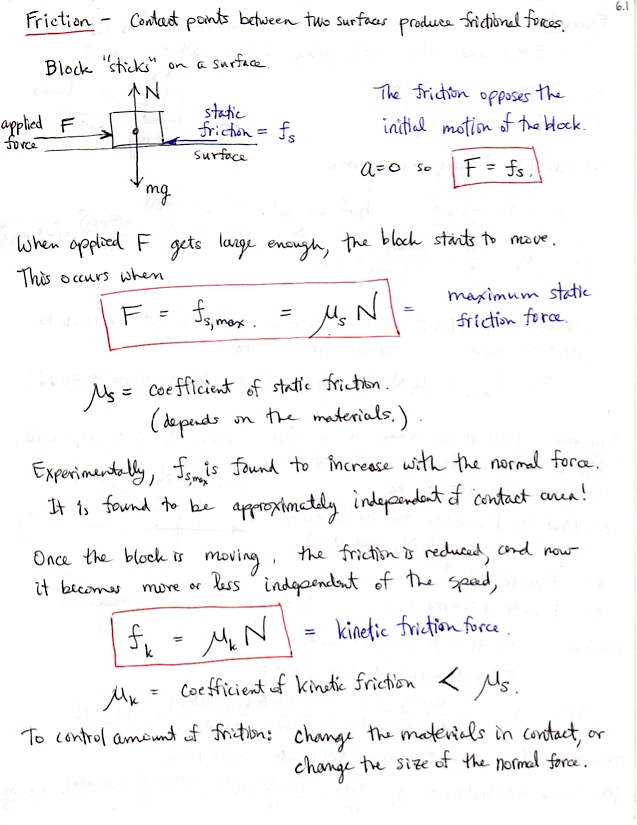 6.1
Friction - Contact points between two surfaces produce frictional forces.
Block "sticks" on a surface.
N
applied force F
static friction = fs
surface
mg
The friction opposes the
initial motion of the block.
a=0 so F = fs.
When applied F gets large enough, the block starts to move.
This occurs when
F = fs,max. = μs N = maximum static friction force.
μs = coefficient of static friction.
(depends on the materials.).
Experimentally, fs,max is found to increase with the normal force.
It is found to be approximately independent of contact area!
Once the block is moving, the friction is reduced, and now
it becomes more or less independent of the speed,
fk = μk N = kinetic friction force.
μk = coefficient of kinetic friction < μs.
To control amount of friction: change the materials in contact, or
change the size of the normal force.